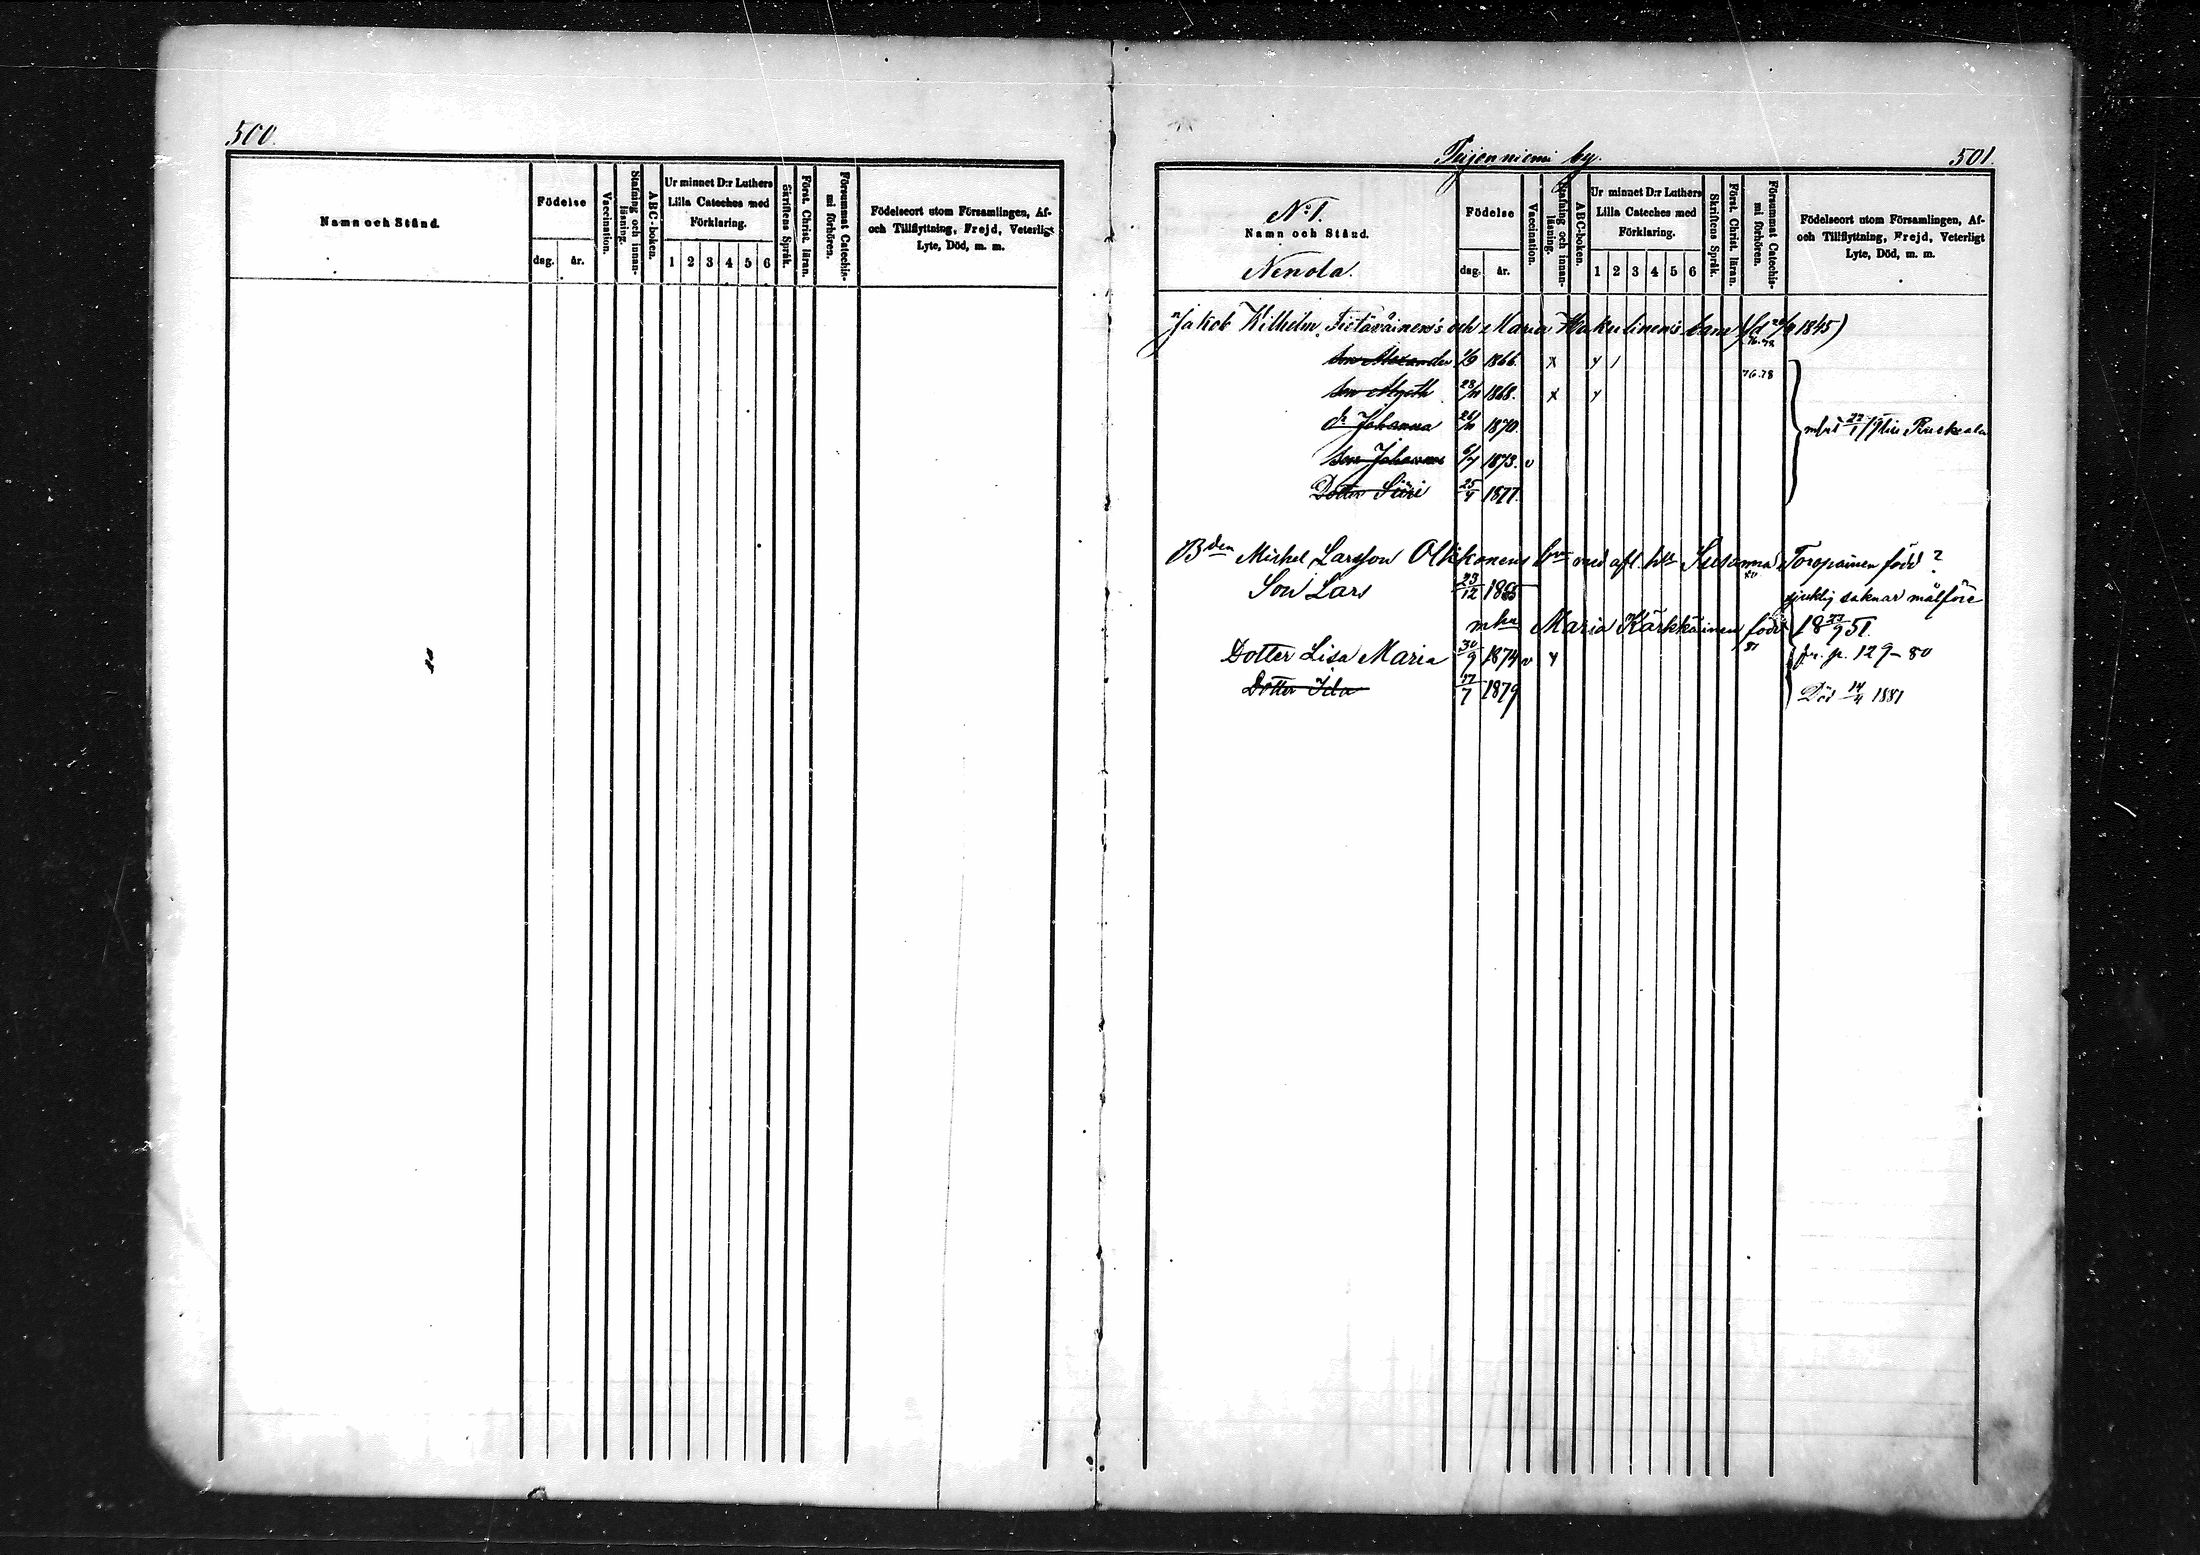 500.
Namn och Stånd.
Födelse
dag. år.
Vaccination.
Stafning och innan-
läsning.
ABC-boken.
Ur minnet D:r Luthers
Lilla Cateches med
Förklaring.
1 2 3 4 5 6
Skriftens Språk.
Först. Christ. läran.
Försummat Catechis-
mi förhören.
Födelseort utom Församlingen, Af-
och Tillflyttning, Frejd, Veterligt
Lyte, Död, m. m.
501.
No 1.
Namn och Stånd.
Nenola.
Födelse
dag. år.
Vaccination.
Stafning och innan-
läsning.
ABC-boken.
Ur minnet D:r Luthers
Lilla Cateches med
Förklaring.
1 2 3 4 5 6
Skriftens Språk.
Först. Christ. läran.
Försummat Catechis-
mi förhören.
Födelseort utom Församlingen, Af-
och Tillflyttning, Frejd, Veterligt
Lyte, Död, m. m.
Jakob Wilhelm Tietäväinen's och Maria Hakulinen's barn 1845)
76.78
son Alexander 1866. x
76.78
son 23/11 1868. x
dr Johanna 26/11 1870.
son Johannes 6/7 1873. v
Dotter Siiri 25/4 1877.
Ruskeala
Bden Michel Larsson Olkkonens med afl. Susanna Toropainen född ?
Son Lars 23/12 sjuklig saknar målföre
Maria Kärkkäinen född 18 51.
Dotter Lisa Maria 30/9 1874 v fr. p. 129-80
81
Dotter Ida 17/7 1879 Död 14/4 1881